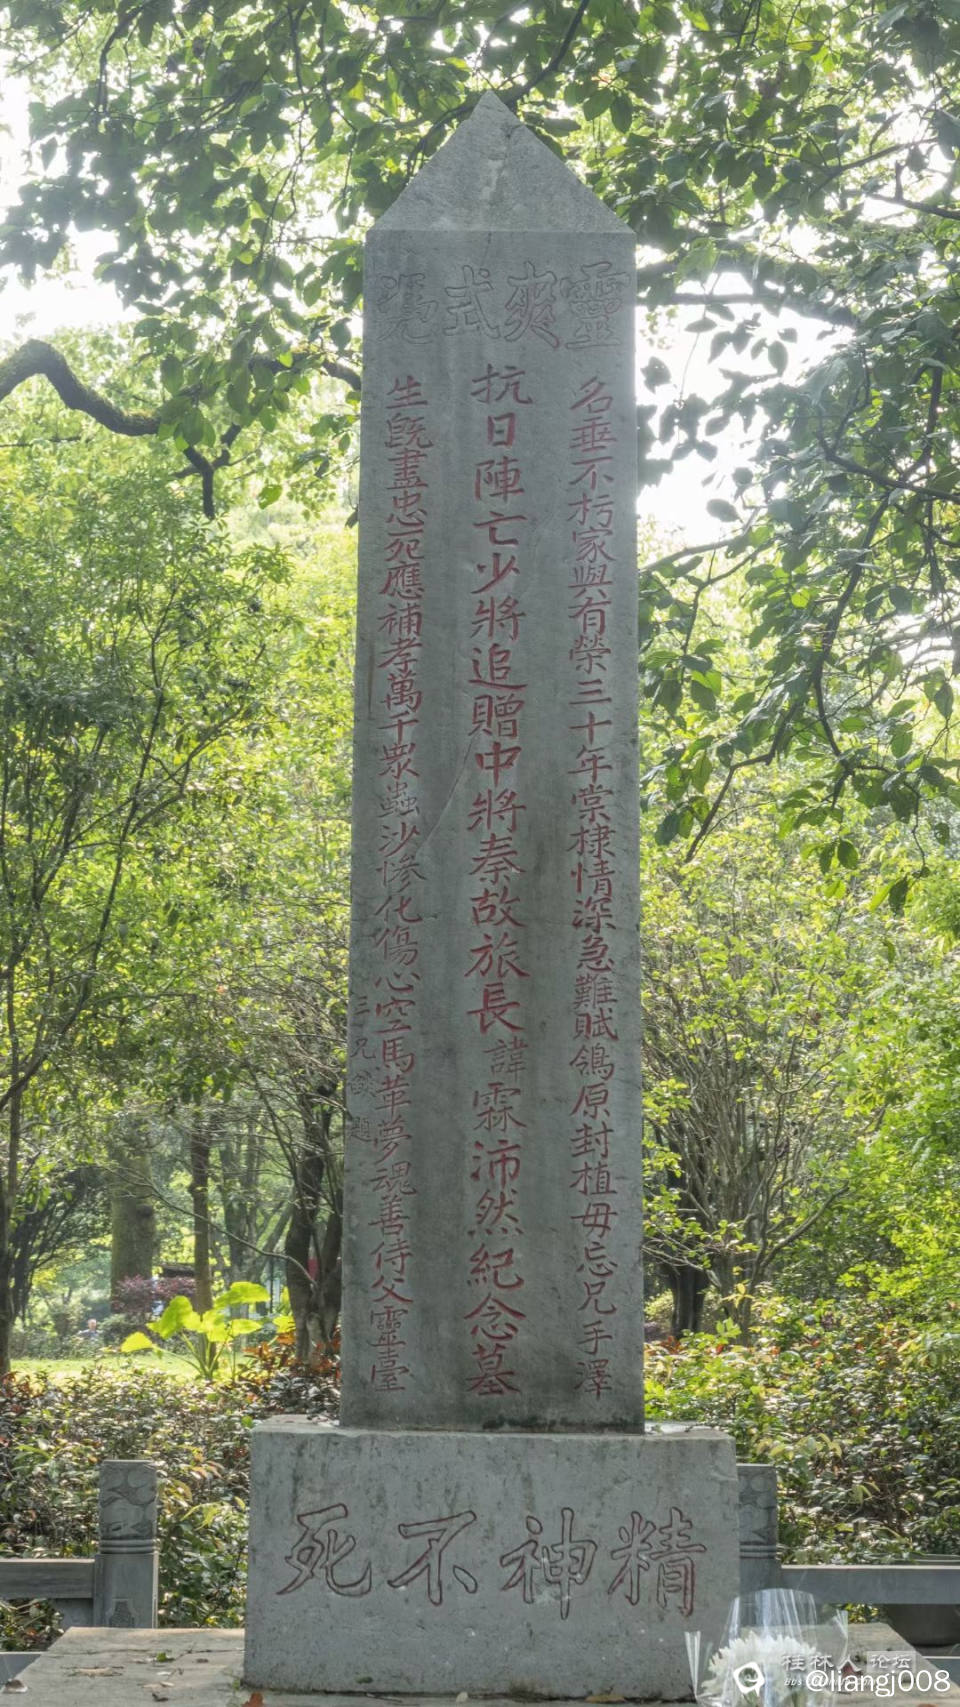 靈爽式憑
名垂不朽家與有榮三十年棠棣情深急難賦鴒原封植毋忘兄手澤
抗日陣亡少將追贈中將秦故旅長諱霖沛然紀念墓
生既盡忠死應補孝萬千眾蟲沙慘化傷心空馬革夢魂善侍父靈臺
精神不死
桂林人论坛
@liangj008